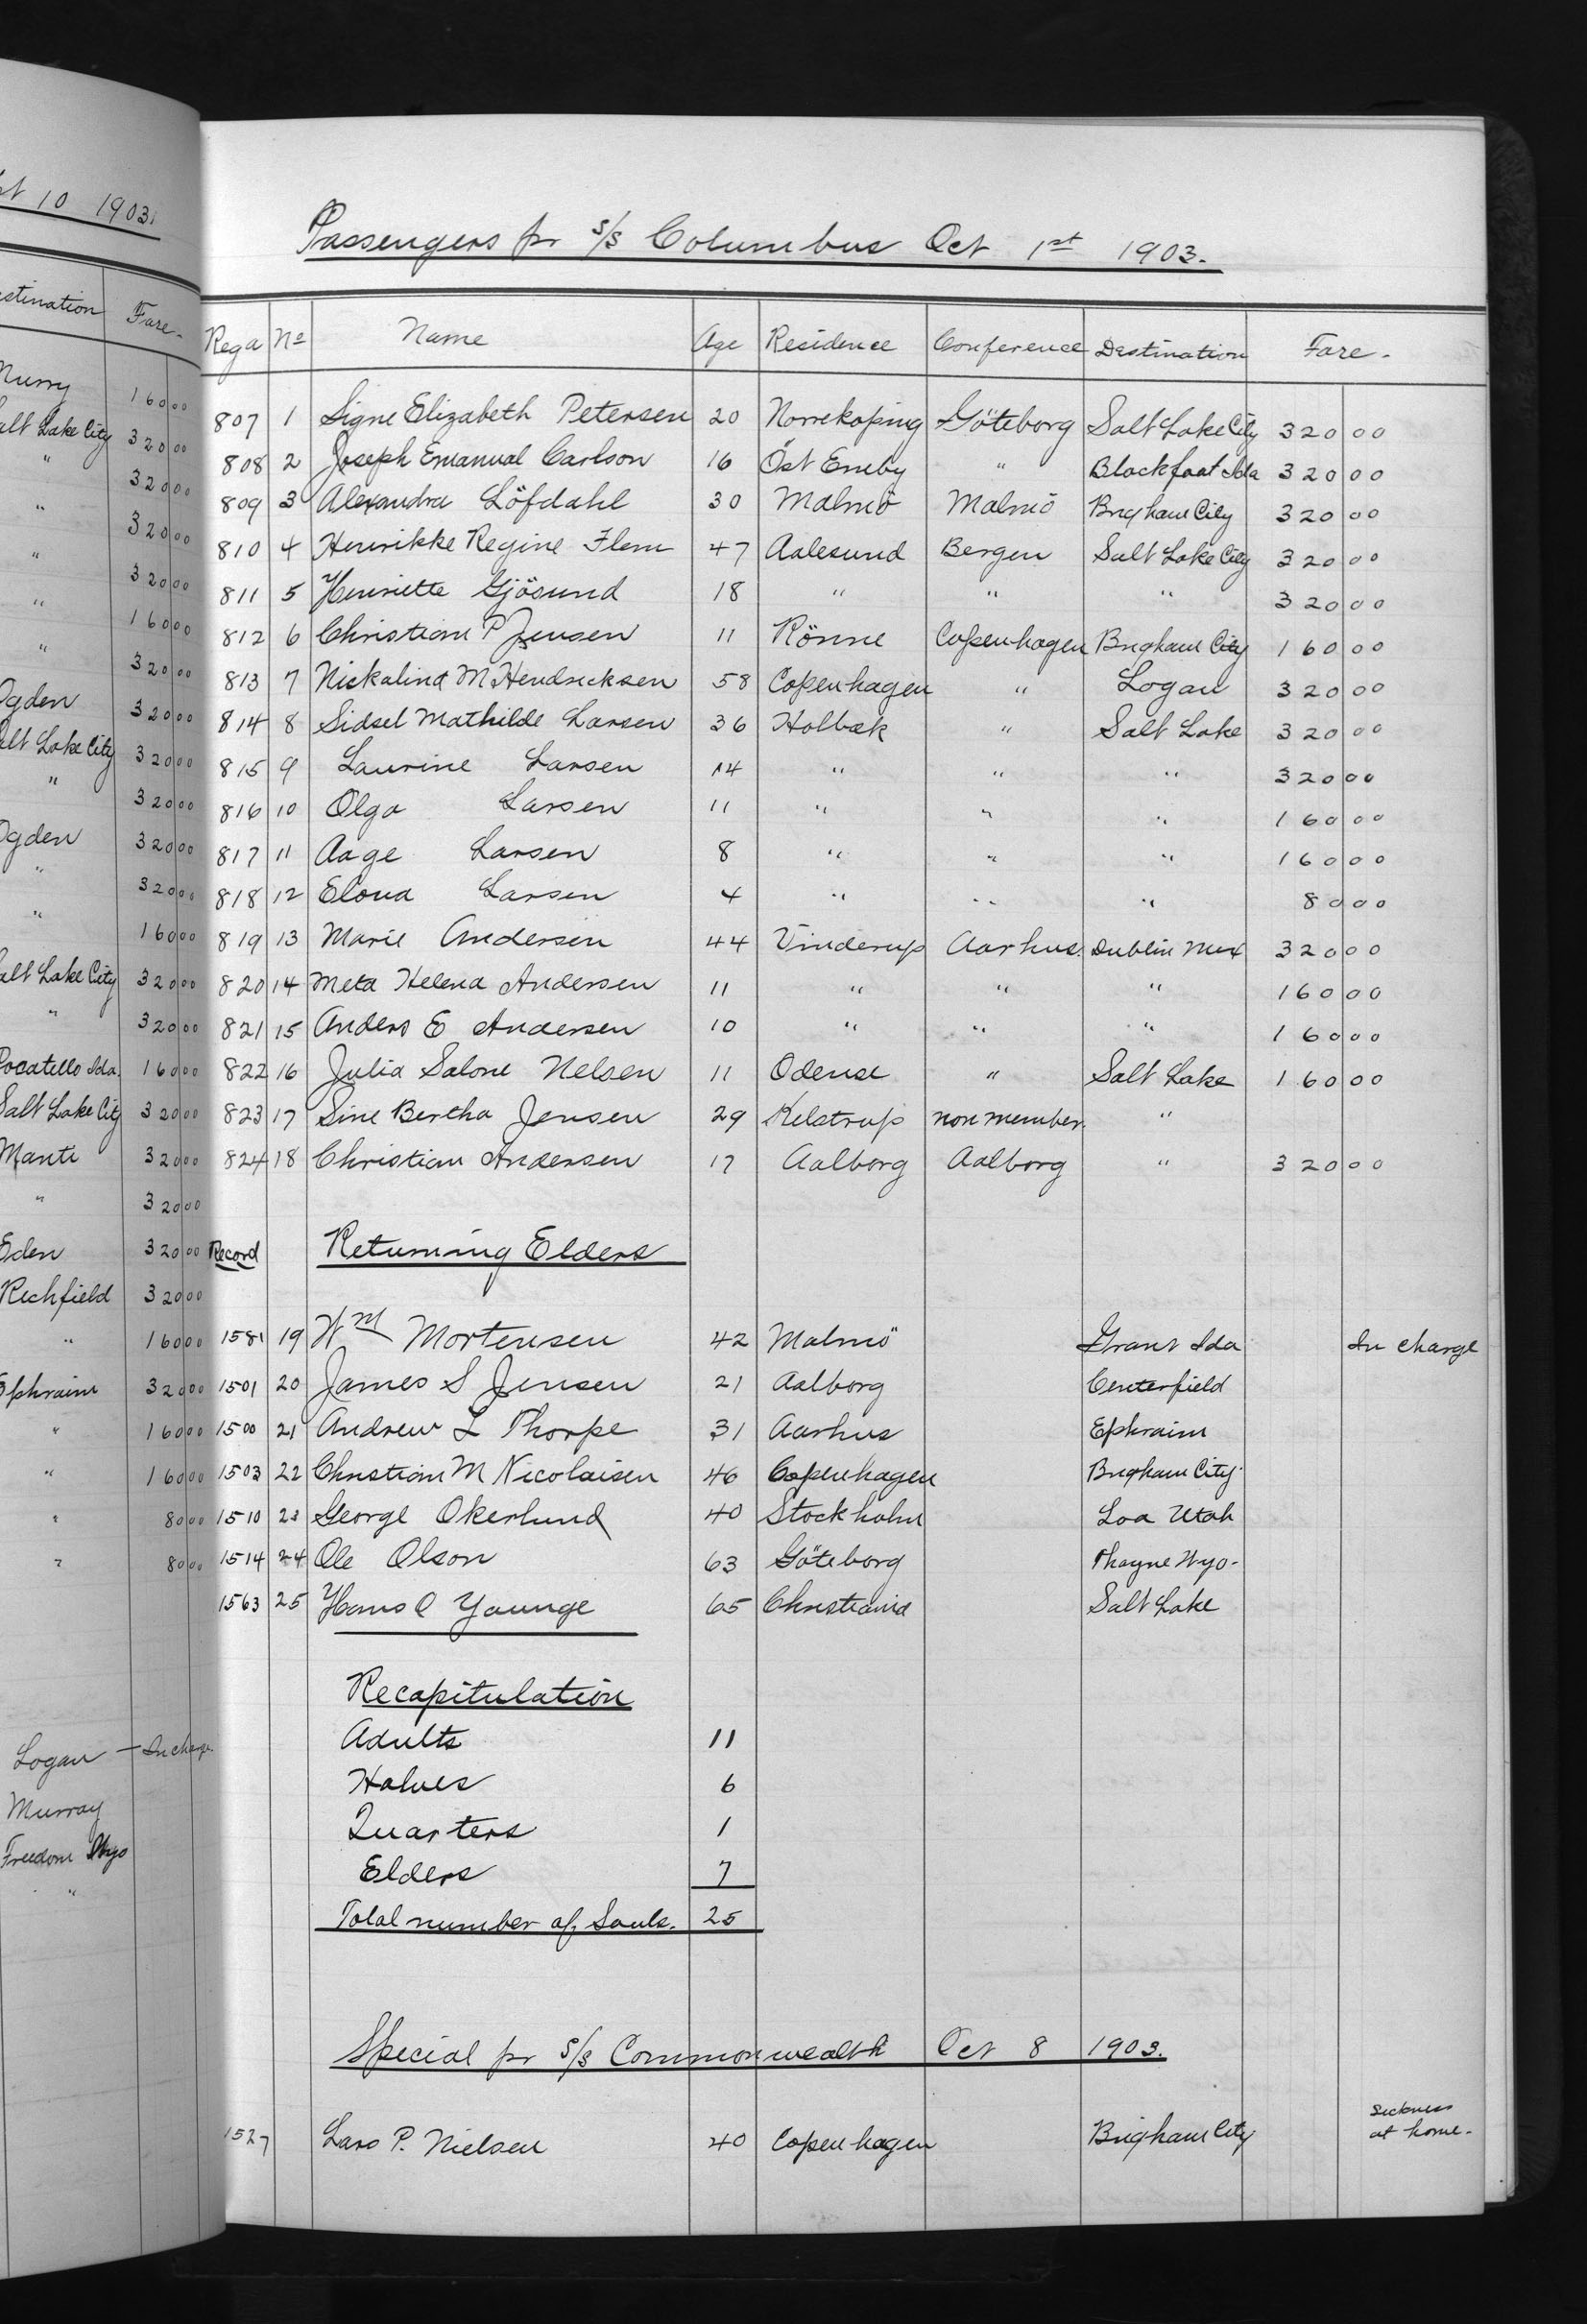 Passengers pr s/s Columbus Oct 1st 1903.
Rega No Name Age Residence Conference Destination Fare.
807 1 Signe Elizabeth Petersen 20 Norrekoping Göteborg Salt Lake City 320 00
808 2 Joseph Emanual Carlson 16 Öst Emeby " Blackfoot Ida 320 00
809 3 Alexandra Löfdahl 30 Malmö Malmö Brigham City 320 00
810 4 Henrikke Regine Flem 47 Aalesund Bergen Salt Lake City 320 00
811 5 Henriette Gjösund 18 " " " 320 00
812 6 Christian P Jensen 11 Rönne Copenhagen Brigham City 160 00
813 7 Nickalina M Hendricksen 58 Copenhagen " Logan 320 00
814 8 Sidsel Mathilde Larsen 36 Holbæk " Salt Lake 320 00
815 9 Laurine Larsen 14 " " " 320 00
816 10 Olga Larsen 11 " " " 160 00
817 11 Aage Larsen 8 " " " 160 00
818 12 Elona Larsen 4 " " " 80 00
819 13 Marie Andersen 44 Vinderup Aarhus. Dublin Mex 320 00
820 14 Meta Helena Andersen 11 " " " 160 00
821 15 Anders E Andersen 10 " " " 160 00
822 16 Julia Salone Nelsen 11 Odense " Salt Lake 160 00
823 17 Sine Bertha Jensen 29 Kelstrup non member. "
824 18 Christian Andersen 17 Aalborg Aalborg " 320 00
Record Returning Elders
1581 19 Wm Mortensen 42 Malmö Grant Ida In charge
1501 20 James S Jensen 21 Aalborg Centerfield
1500 21 Andrew L Thorpe 31 Aarhus Ephraim
1503 22 Christian M Nicolaisen 46 Copenhagen Brigham City
1510 23 George Okerlund 40 Stockholm Loa Utah
1514 24 Ole Olson 63 Göteborg Thayne Wyo-
1563 25 Hans O Younge 65 Christiania Salt Lake
Recapitulation
Adults 11
Halves 6
Quarters 1
Elders 7
Total number of Souls. 25
Special pr s/s Commonwealth Oct 8 1903.
1527 Lars P. Nielsen 40 Copenhagen Brigham City sickness at home.
10 1903.
Fare.
160 00
Salt Lake City 320 00
" 320 00
" 320 00
" 320 00
" 160 00
" 320 00
Ogden 320 00
Salt Lake City 320 00
" 320 00
Ogden 320 00
" 320 00
" 160 00
Salt Lake City 320 00
" 320 00
Pocatello Ida. 160 00
Salt Lake City 320 00
Manti 320 00
" 320 00
Eden 320 00
Richfield 320 00
" 160 00
Ephraim 320 00
" 160 00
" 160 00
" 80 00
" 80 00
Logan — In charge.
Murray
Freedom Wyo
"